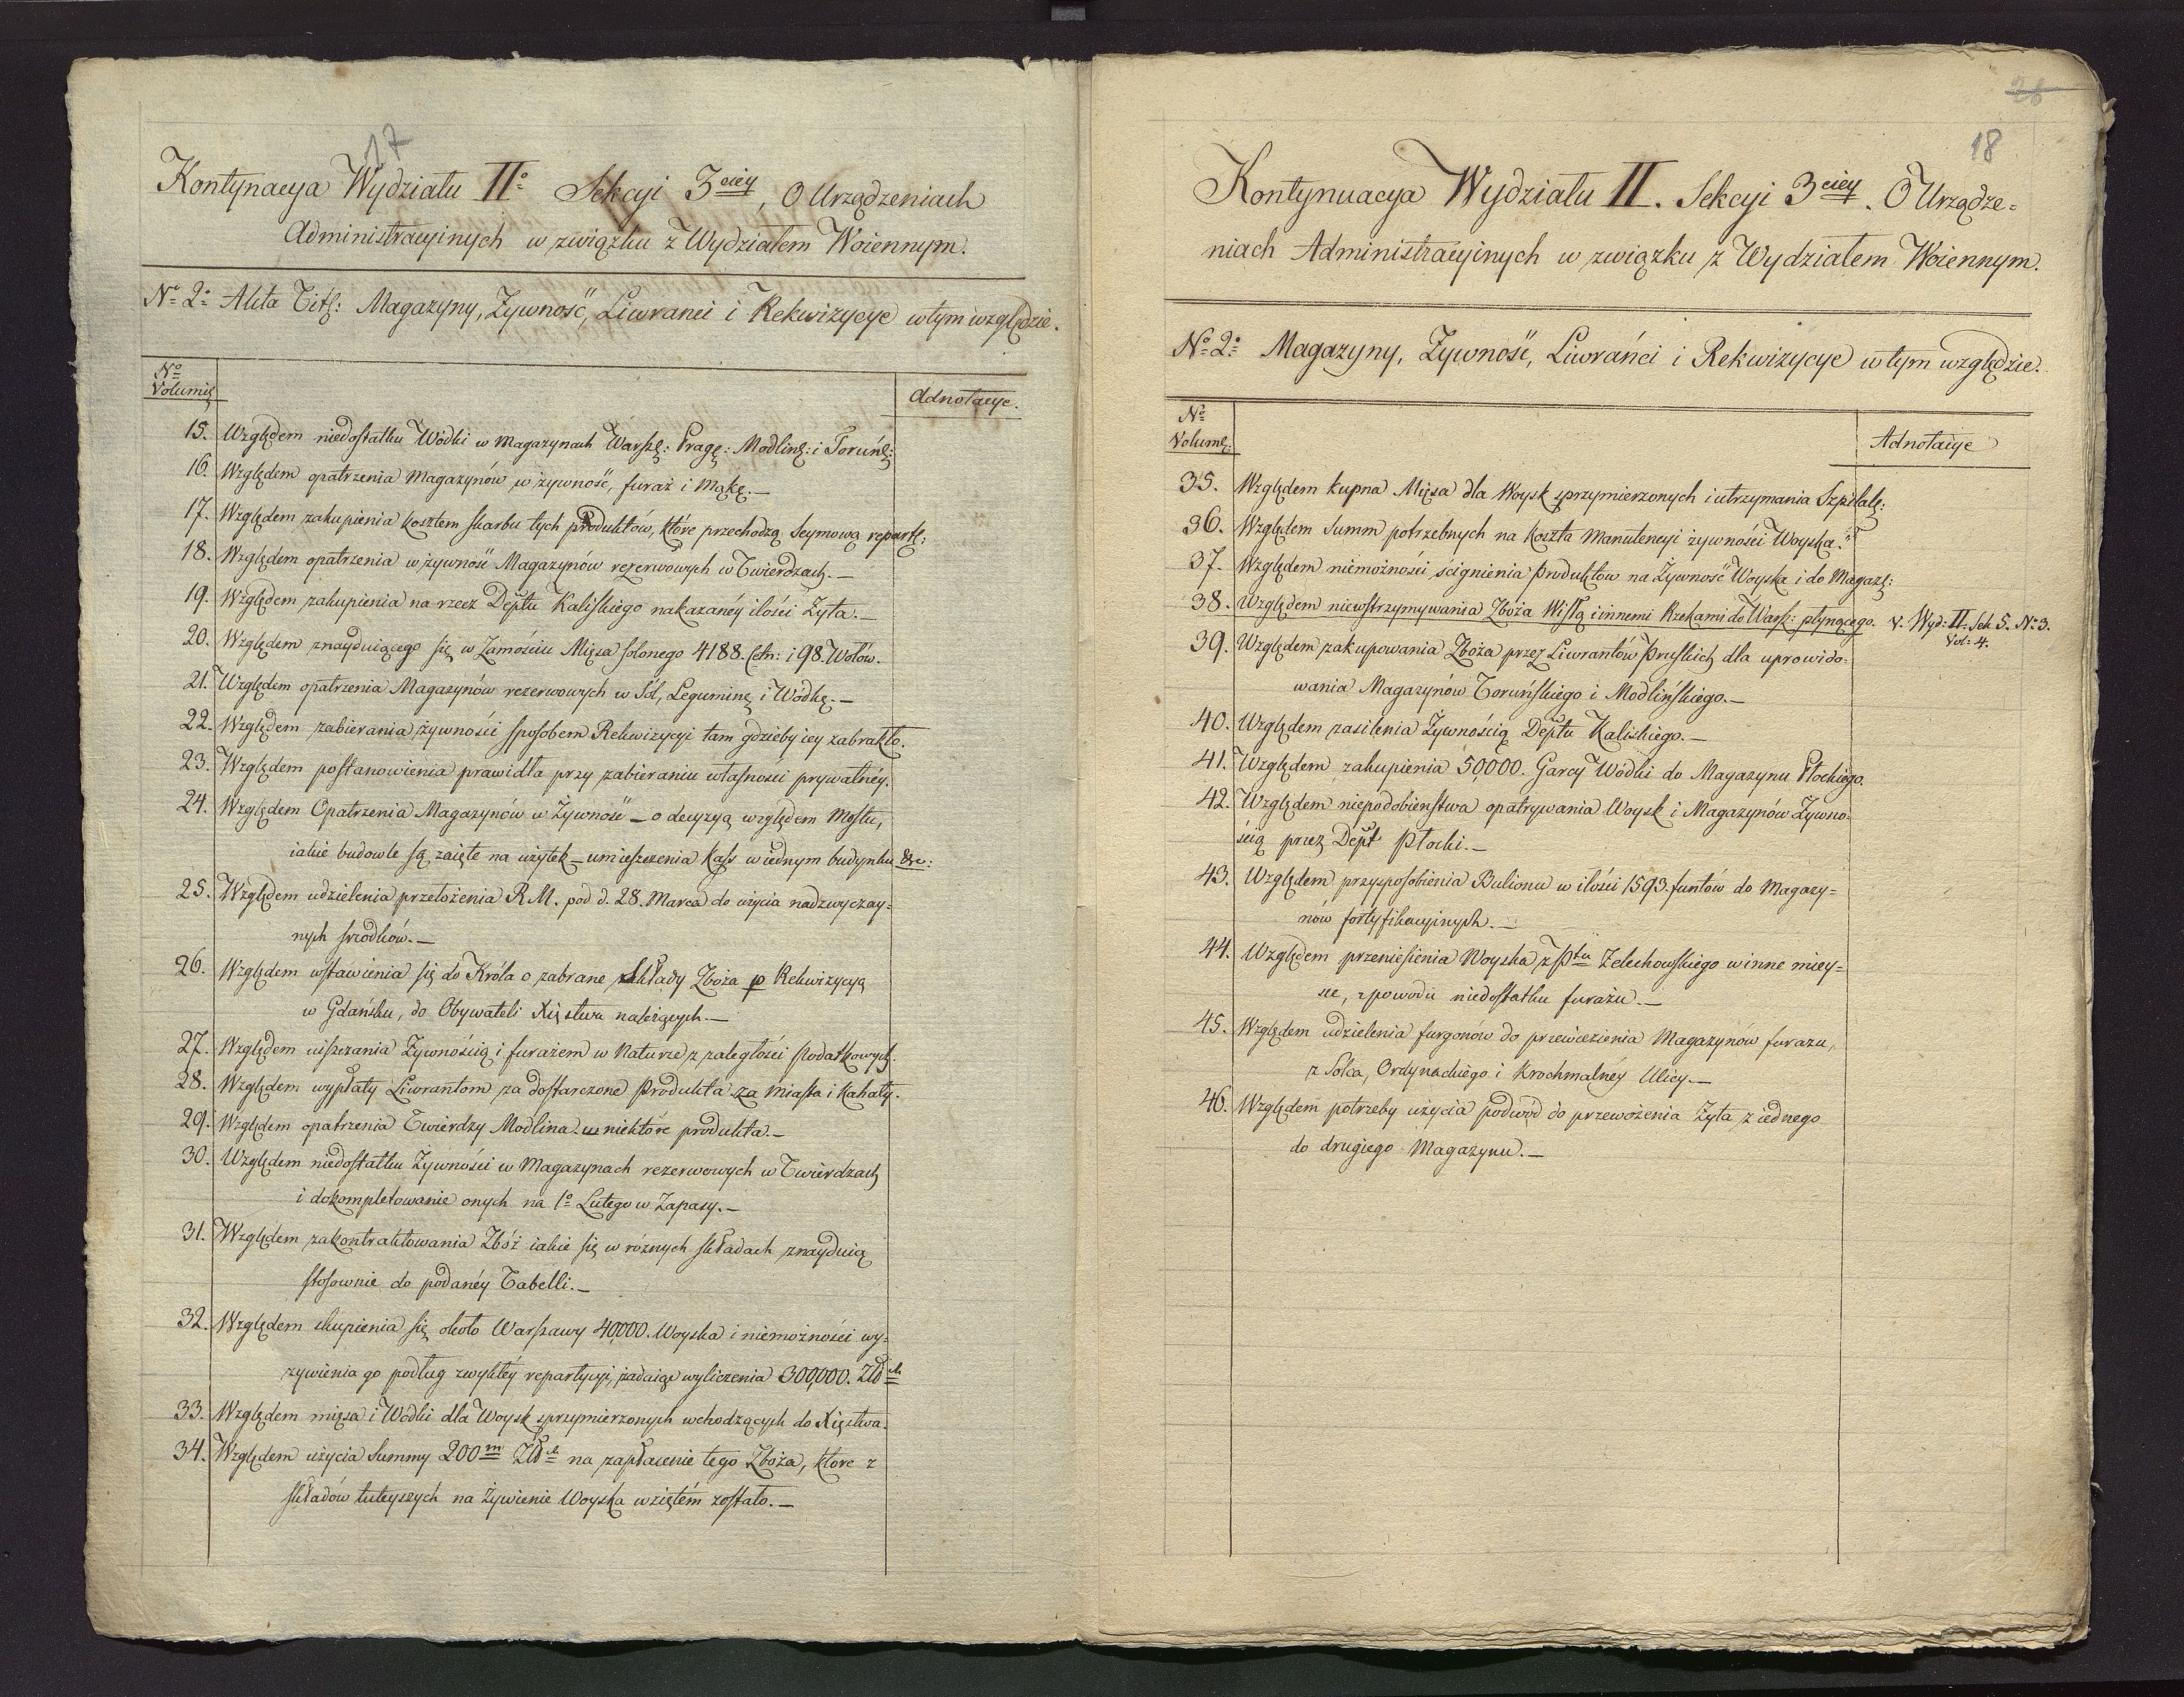 17
Kontynacya Wydziału IIº Sekcyi 3ciey, O Urządzeniach
Administracyinych w związku z Wydziałem Woiennym.
Nº 2º Akta Titł: Magazyny, Żywność, Liwranci i Rekwizycye w tym względzie.
Nº
Volumię
Adnotacye.
15. Względem niedostatku Wódki w Magazynach Warszę: Pragę: Modlinę: i Toruńę:
16. Względem opatrzenia Magazynów w żywność, furaż i Mąkę.—
17. Względem zakupienia kosztem skarbu tych produktów, które przechodzą Seymową repartę:
18. Względem opatrzenia w żywność Magazynów rezerwowych w Twierdzach.—
19. Względem zakupienia na rzecz Deptu Kaliskiego nakazanéy ilości Żyta.—
20. Względem znayduiącego się w Zamościu Mięsa solonego 4188. Cetn: i 98. Wołów.
21. Względem opatrzenia Magazynów rezerwowych w Sól, Leguminę i Wódkę.—
22. Względem zabierania żywności sposobem Rekwizycyi tam gdzieby iey zabrakło.
23. Względem postanowienia prawidła przy zabieraniu własności prywatnéy.
24. Względem Opatrzenia Magazynów w Żywność — o decyzyą względem Mostu,
iakie budowle są zaięte na użytek — umieszczenia Kass w iednym budynku &c:
25. Względem udzielenia przełożenia R.M. pod d. 28. Marca do użycia nadzwyczay=
nych srzodków.—
26. Względem wstawienia się do Króla o zabrane składy Zboża p Rekwizycyą
w Gdańsku, do Obywateli Xięstwa należących.—
27. Względem uiszczania Żywnością i furażem w Naturze z zaległości Podatkowych.
28. Względem wypłaty Liwrantom za dostarczone Produkta za Miasta i Kahały.
29. Względem opatrzenia Twierdzy Modlina w niektóre produkta.—
30. Względem niedostatku Żywności w Magazynach rezerwowych w Twierdzach
i dokompletowanie onych na 1º Lutego w Zapasy.—
31. Względem zakontraktowania Zbóż iakie się w różnych składach znayduią
stosownie do podanéy Tabelli.—
32. Względem skupienia się około Warszawy 40,000. Woyska i niemożności wy=
żywienia go podług zwykłéy repartycyi, żądaiąc wyliczenia 300,000. Złł
33. Względem mięsa i Wódki dla Woysk sprzymierzonych wchodzących do Xięstwa.
34. Względem użycia Summy 200m Złł na zapłacenie tego Zboża, które z
składów tuteyszych na Żywienie Woyska wziętém zostało.—
26
18
Kontynuacya Wydziału II. Sekcyi 3ciey. O Urządze=
niach Administracyinych w związku z Wydziałem Woiennym.
Nº 2º Magazyny, Żywność, Liwranci i Rekwizycye w tym względzie.
Nº
Volumę:
Adnotacye
35. Względem kupna Mięsa dla Woysk sprzymierzonych i utrzymania Szpitalę:
36. Względem Summ potrzebnych na koszta Manutencyi żywności Woyska.
37. Względem niemożności ściągnienia Produktow na Żywność Woyska i do Magazę:
38. Względem niewstrzymywania Zboża Wisłą i innemi Rzekami do Warsz: płynącego. V. Wyd: II. Sek 5. Nº 3.
Vol: 4.
39. Względem zakupowania Zboża przez Liwrantów Pruskich dla uprowido=
wania Magazynów Toruńskiego i Modlińskiego.—
40. Względem zasilenia Żywnością Deptu Kaliskiego.—
41. Względem zakupienia 50,000. Garcy Wódki do Magazynu Płockiego.
42. Względem niepodobieństwa opatrywania Woysk i Magazynów Żywno=
ścią przez Dept Płocki.—
43. Względem przysposobienia Bulionu w ilości 1593. funtów do Magazy=
nów fortyfikacyinych.—
44. Względem przeniesienia Woyska z Ptu Zelechowskiego w inne miey=
sce, z powodu niedostatku furażu.—
45. Względem udzielenia furgonów do przewiezienia Magazynów furażu,
z Solca, Ordynackiego i Krochmalnéy Ulicy.—
46. Względem potrzeby użycia podwód do przewożenia Żyta z iednego
do drugiego Magazynu.—